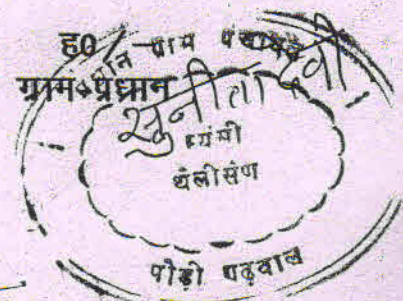 ह0
ग्राम पंचायत
ग्राम प्रधान
सुनीता देवी
थलीसैंण
पौड़ी गढ़वाल